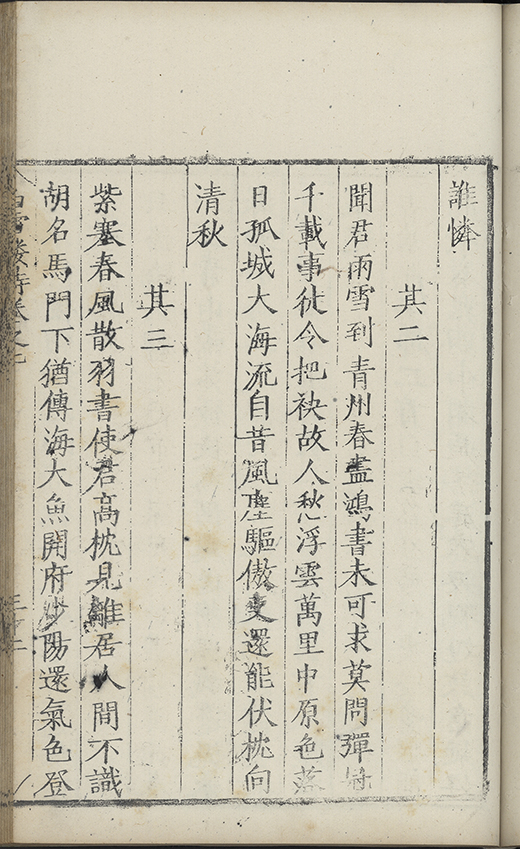 誰憐
其二
聞君雨雪到青州春盡鴻書未可求莫問彈冠
千載事徒令把袂故人愁浮雲萬里中原色落
日孤城大海流自昔風塵驅傲吏還能伏枕向
清秋
其三
紫塞春風散羽書使君高枕見離居人間不識
胡名馬門下猶傳海大魚開府漁陽還氣色登
白雪樓詩卷之七